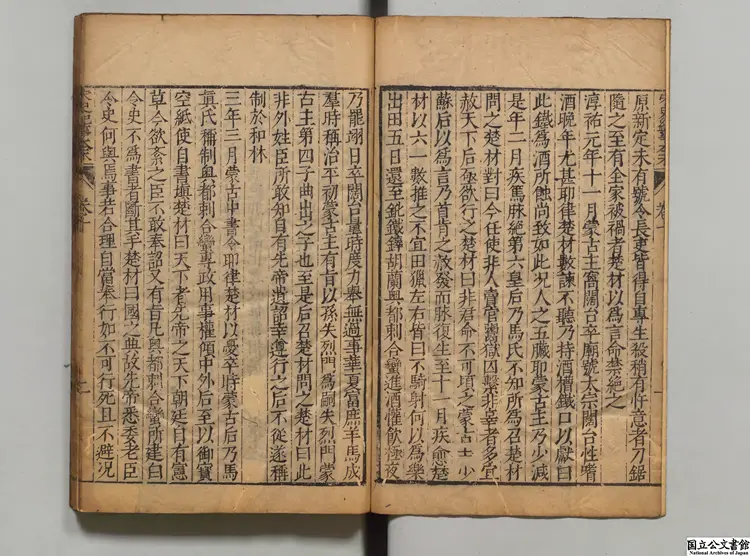 原新定未有號令長吏皆得自專生殺稍有忤意者刀鋸
隨之至有全家被禍者楚材以爲言命禁絕之
淳祐元年十一月蒙古主窩闊台卒廟號太宗闊台性嗜
酒晚年尤甚耶律楚材數諫不聽乃持酒槽鐵口以獻曰
此鐵爲酒所蝕尚致如此况人之五臟耶蒙古主乃少減
是年二月疾篤脉絕第六皇后乃馬氏不知所爲召楚材
問之楚材對曰今任使非人賣官鬻獄囚繫非辜者多宜
赦天下后亟欲行之楚材曰非君命不可頃之蒙古主少
蘇后以爲言乃首肯之赦發而脉復生至十一月疾愈楚
材以六一數推之不宜田獵左右皆曰不騎射何以爲樂
出田五日還至鈋鐵鐸胡蘭奧都剌合蠻進酒懽飲極夜
乃罷翊日卒闊台量時度力舉無過事華夏富庶羊馬成
羣時稱治平初蒙古主有旨以孫失烈門爲嗣失烈門蒙
古主第四子曲出之子也至是后召楚材問之楚材曰此
非外姓臣所敢知自有先帝遺詔幸遵行之后不從遂稱
制於和林
三年三月蒙古中書令耶律楚材以憂卒時蒙古后乃馬
真氏稱制奧都剌合蠻專政用事權傾中外后至以御寶
空紙使自書填楚材曰天下者先帝之天下朝廷自有憲
章今欲紊之臣不敢奉詔又有旨凡奧都剌合蠻所建白
令史不爲書者斷其手楚材曰國之典故先帝悉委老臣
令史何與焉事若合理自當奉行如不可行死且不避况
国立公文書館
National Archives of Japan